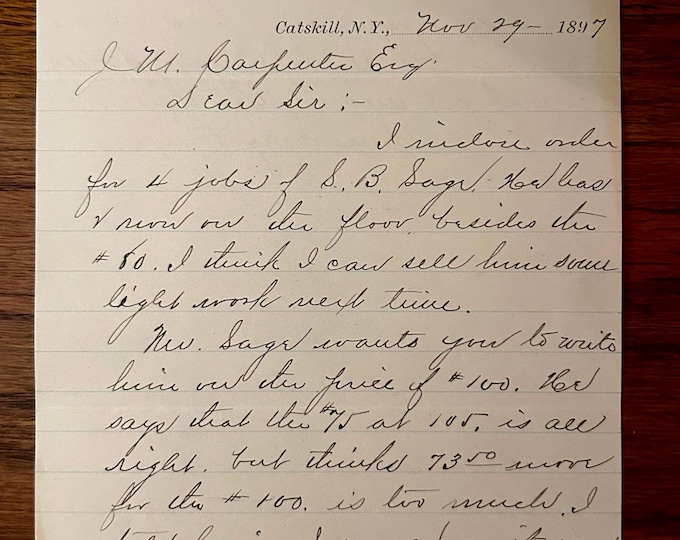 Catskill, N.Y., Nov 29 - 1897
J M. Carpenter Esq.
Dear Sir :-
I inclose order
for 4 jobs of S. B. Sage. He has
2 now on the floor besides the
I think I can sell him some
light work next time.
Mr. Sage wants you to write
him on the price of #100. He
says that the #75 at 105. is all
right. but thinks 73 50 more
for the #100. is too much. I